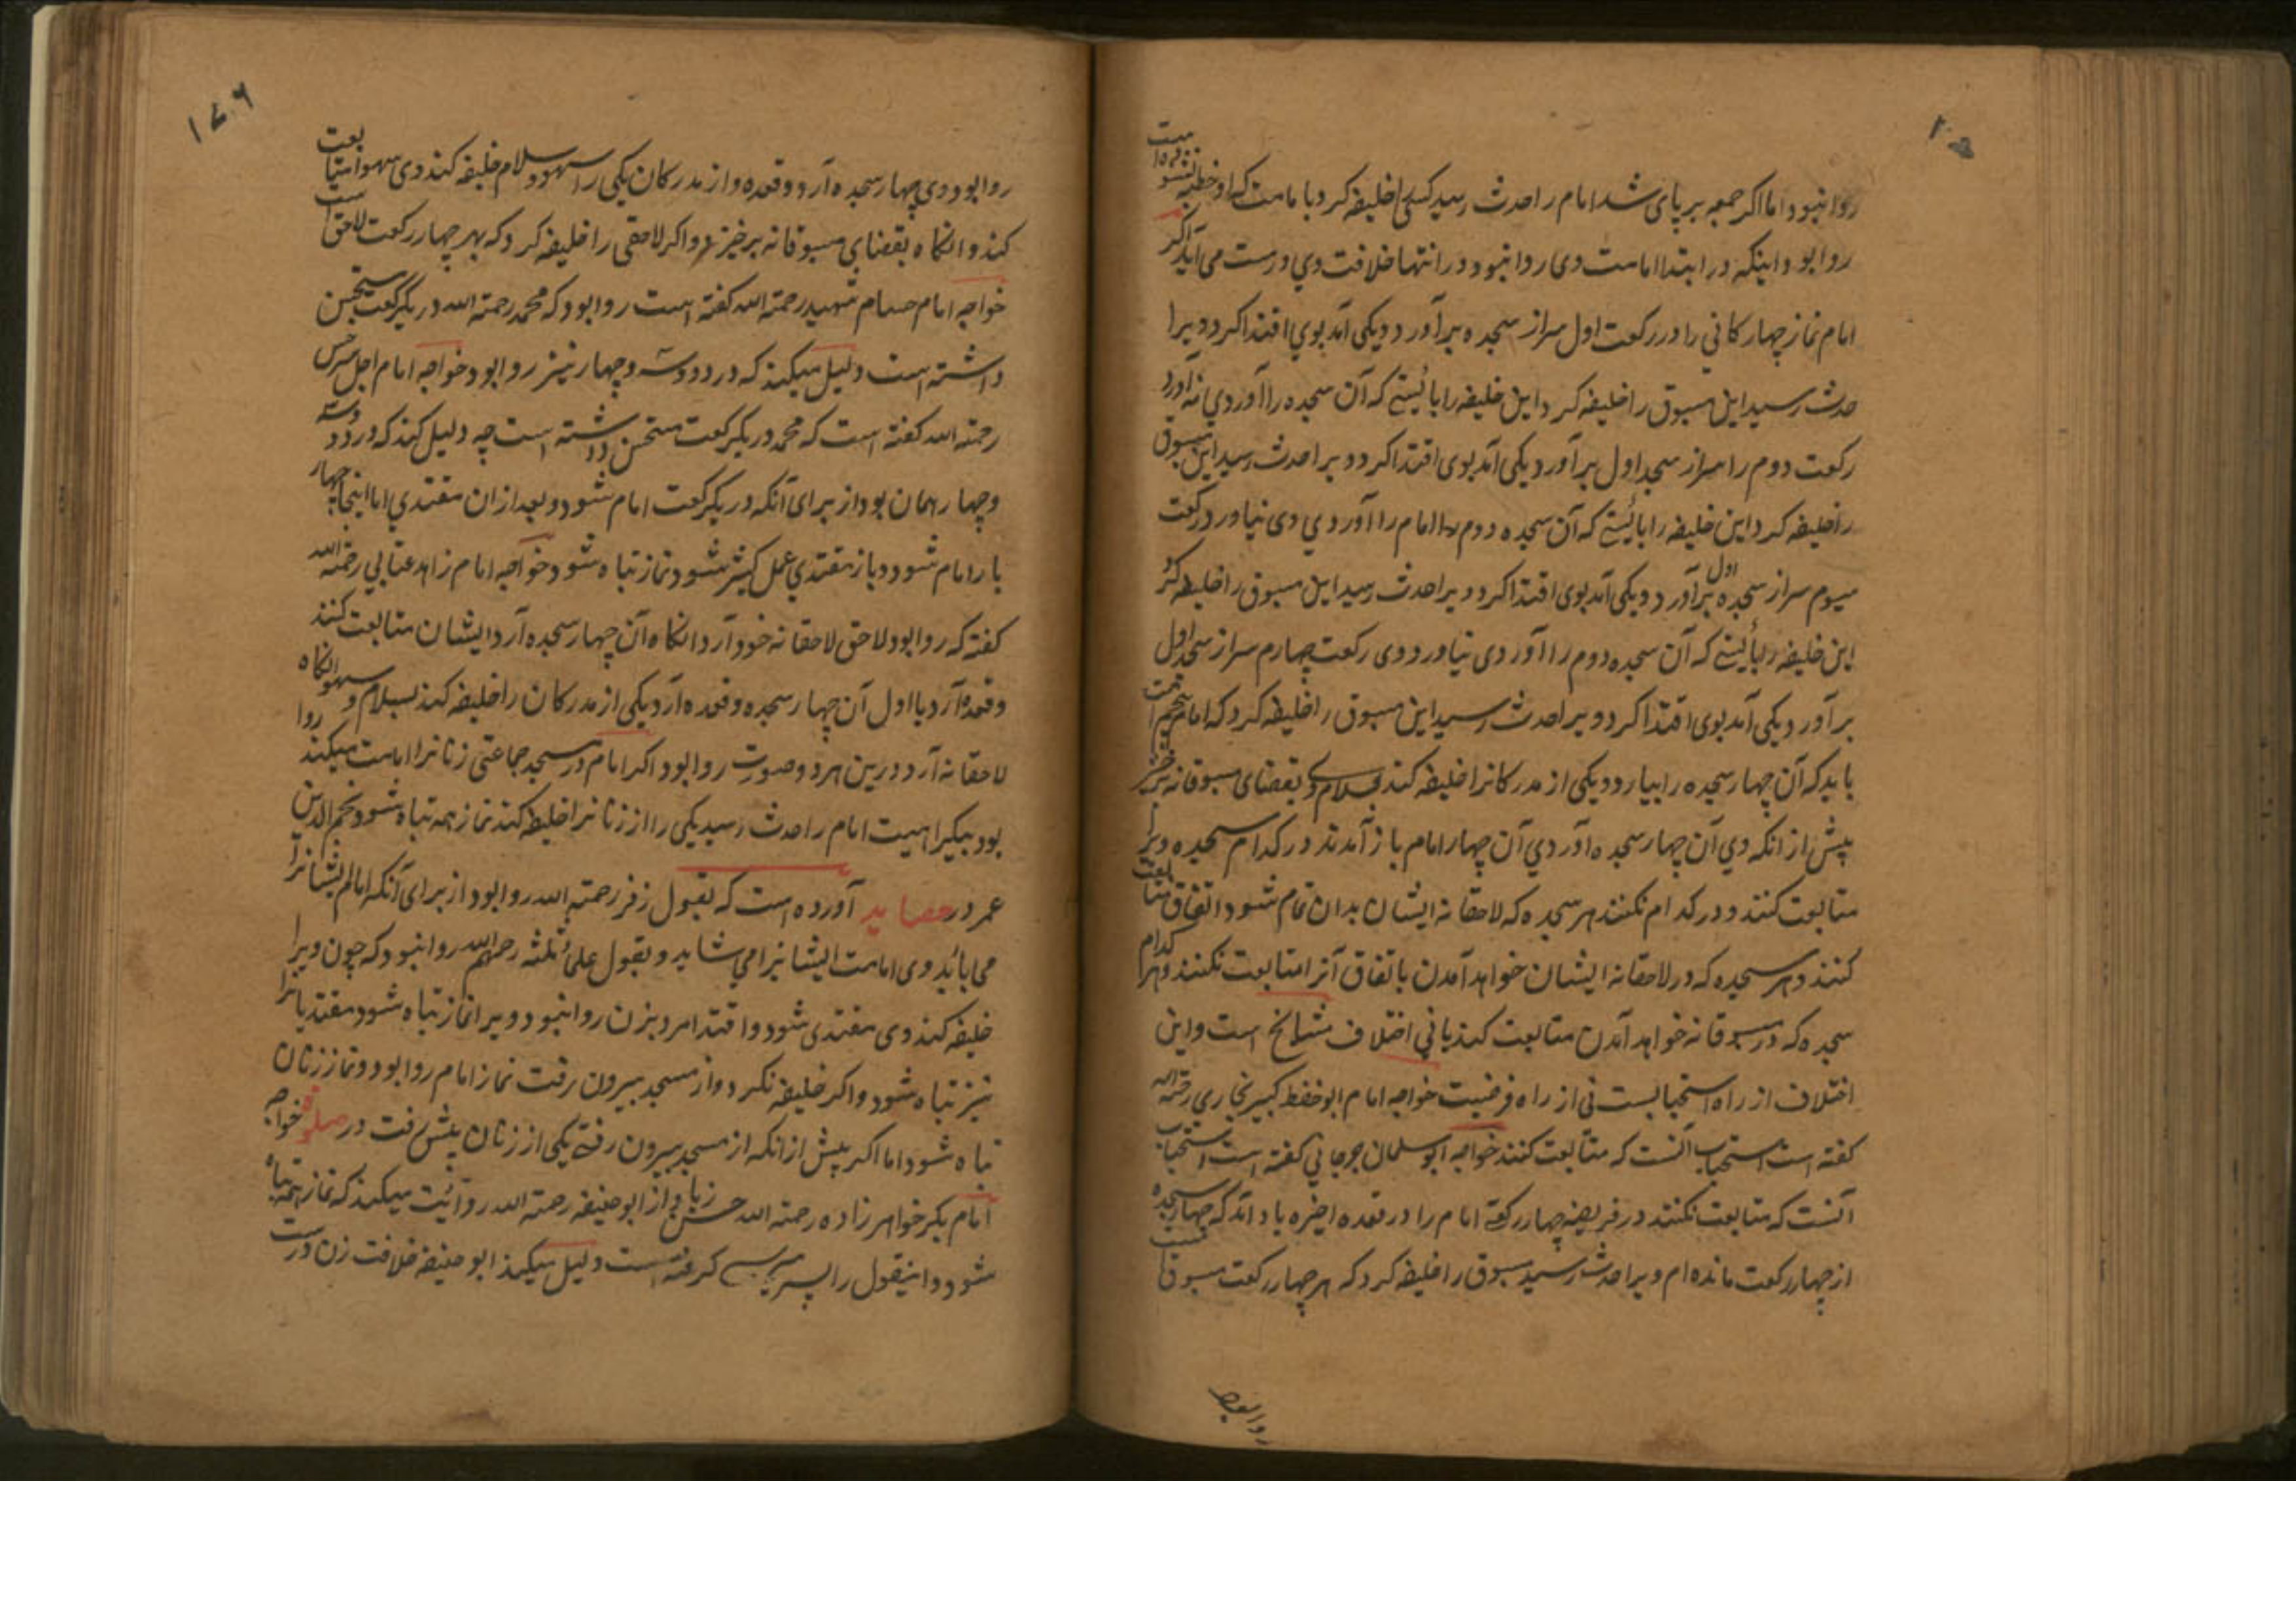 روا نبود اما اگر جمعه بر پای شد امام را حدث رسید کسی را خلیفه کرد با مامت که او خطبه نشنوده است
روا بود اینکه در ابتدا امامت وی روا نبود در انتها خلافت وی درست می آید اگر
امام نماز چهارکانی را در رکعت اول سر از سجده برآورد و یکی آمد بوی اقتدا کرد ویرا
حدث رسید این مسبوق را خلیفه کرد این خلیفه را بایستی که آن سجده را آوردی نه آورد
رکعت دوم را سر از سجد اول برآورد یکی آمد بوی اقتدا کرد ویرا حدث رسید این مسبوق
را خلیفه کرد این خلیفه را بایستی که آن سجده دوم امام را آوردی وی نیاورد رکعت
سیوم سر از سجده اول برآورد و یکی آمد بوی اقتدا کرد ویرا حدث رسید این مسبوق را خلیفه کرد
این خلیفه را بایستی که آن سجده دوم را آوردی نیاورد وی رکعت چهارم سر از سجد اول
برآورد یکی آمد بوی اقتدا کرد ویرا حدث رسید این مسبوق را خلیفه کرد که امام پنجم است
باید که آن چهار سجده را بیارد و یکی از مدرکانرا خلیفه کند بسلام و بقضای مسبوقانه برخیزد
پیش از انکه وی آن چهار سجده آوردی آن چهار امام باز آمدند در کدام سجده ویرا
متابعت کنند و در کدام نکنند هر سجده که لاحقانه ایشان بدان تمام شود باتفاق متابعت
کنند و هر سجده که در لاحقانه ایشان خواهد آمدن باتفاق آنرا متابعت نکنند و هر کدام
سجده که در مسبوقانه خواهد آمدن متابعت کند یا نی اختلاف مشایخ است و این
اختلاف از راه استحبابست نی از راه فرضیت خواجه امام ابوحفص کبیر بخاری رحمه الله
گفته است استحباب آنست که متابعت کنند خواجه ابو سلیمان جوجانی گفته است استحباب
آنست که متابعت نکنند در فریضه چهار رکعتی امام را در قعده اخیره یاد آمد که چهار سجده
از چهار رکعت مانده ام ویرا حدث رسید مسبوق را خلیفه کرد که هر چهار رکعت مسبوق است
روا بود
روا بود وی چهار سجده آرد و قعده و از مدرکان یکی را سهو و سلام خلیفه کند وی سهو را متابعت
کند و انگاه بقضای مسبوقانه برخیزد و اگر لاحقی را خلیفه کرد که بهر چهار رکعت لاحق است
خواجه امام حسام شهید رحمته الله گفته است روا بود که محمد رحمته الله در یکرکعت مستحسن
داشته است دلیل میکند که در دو و سه و چهار نیز روا بود خواجه امام اجل سرخسی
رحمته الله گفته است که محمد در یکرکعت مستحسن داشته است چه دلیل کند که در دو و سه
و چهار همان بود از برای آنکه در یکرکعت امام شود و بعد از ان مقتدی اما اینجا چهار
بار امام شود و باز مقتدی عمل کثیر شود و نماز تباه شود خواجه امام زاهد عتابی رحمته الله
گفته که روا بود لاحق لاحقانه خود آرد انگاه آن چهار سجده آرد ایشان متابعت کنند
و قعده آرد یا اول آن چهار سجده و قعده آرد یکی از مدرکان را خلیفه کند بسلام و سهو انگاه
لاحقانه آرد درین هر دو صورت روا بود اگر امام در مسجد جماعتی زنانرا امامت میکند روا
بود بیکراهیت امام را حدث رسید یکی را از زنانرا خلیفه کند نماز همه تباه شود نجم الدین
عمر در حصاید آورده است که بقول زفر رحمته الله روا بود از برای آنکه امام ایشانرا
می باید وی امامت ایشانرا می شاید و بقول علمای ثلثه رحمهم الله روا نبود که چون ویرا
خلیفه کند وی مقتدی شود و اقتدا مرد بزن روا نبود ویرا نماز تباه شود مقتدیانرا
نیز تباه شود و اگر خلیفه نکرد و از مسجد بیرون رفت نماز امام روا بود و نماز زنان
تباه شود اما اگر پیش از انکه از مسجد بیرون رفتی یکی از زنان پیش رفت در صلوة خواجه
امام بکر خواهر زاده رحمته الله حسن زیاد از ابو حنیفه رحمته الله روایت میکند که نماز همه تباه
شود و اینقول را گرفته است دلیل میکند ابو حنیفه خلافت زن درست